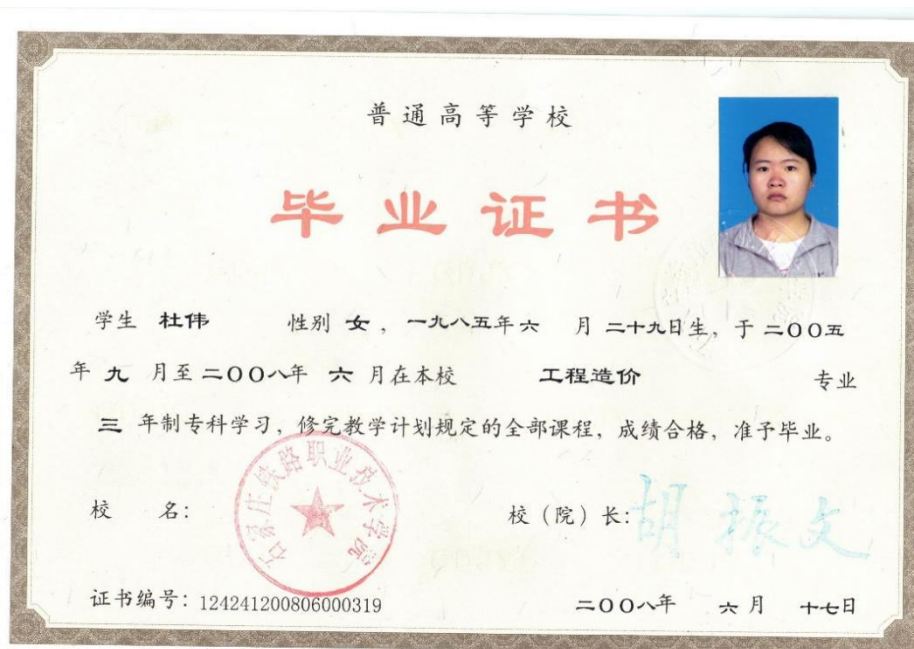 普通高等学校
毕业证书
学生 杜伟 性别 女，一九八五年六 月 二十九日生，于 二〇〇五
年 九 月至 二〇〇八年 六 月在本校 工程造价 专业
三 年制专科学习，修完教学计划规定的全部课程，成绩合格，准予毕业。
石家庄铁路职业技术学院
校 名：
校（院）长：胡振文
证书编号：124241200806000319
二〇〇八年 六 月 十七日